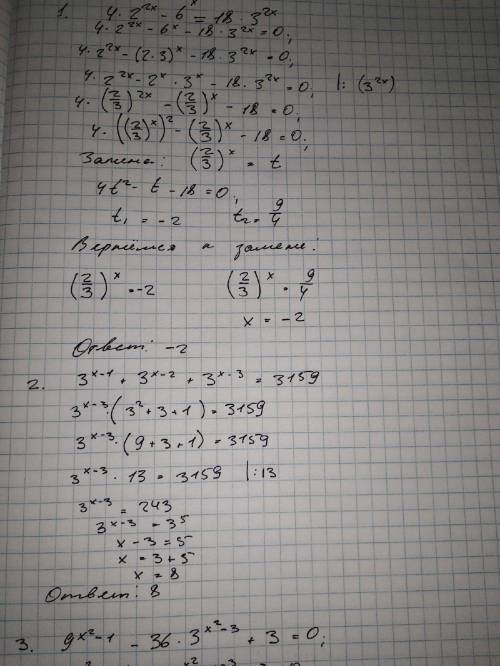 1. 4·2^{2x} - 6^x = 18·3^{2x}
4·2^{2x} - 6^x - 18·3^{2x} = 0;
4·2^{2x} - (2·3)^x - 18·3^{2x} = 0;
4·2^{2x} - 2^x·3^x - 18·3^{2x} = 0; |: (3^{2x})
4·(2/3)^{2x} - (2/3)^x - 18 = 0;
4·((2/3)^x)^2 - (2/3)^x - 18 = 0;
Замена: (2/3)^x = t
4t^2 - t - 18 = 0;
t₁ = -2 t₂ = 9/4
Вернёмся к замене:
(2/3)^x = -2 (2/3)^x = 9/4
x = -2
Ответ: -2
2. 3^{x-1} + 3^{x-2} + 3^{x-3} = 3159
3^{x-3}·(3^2+3+1) = 3159
3^{x-3}·(9+3+1) = 3159
3^{x-3}·13 = 3159 |:13
3^{x-3} = 243
3^{x-3} = 3^5
x - 3 = 5
x = 3 + 5
x = 8
Ответ: 8
3. 9^{x^2-1} - 36·3^{x^2-3} + 3 = 0;